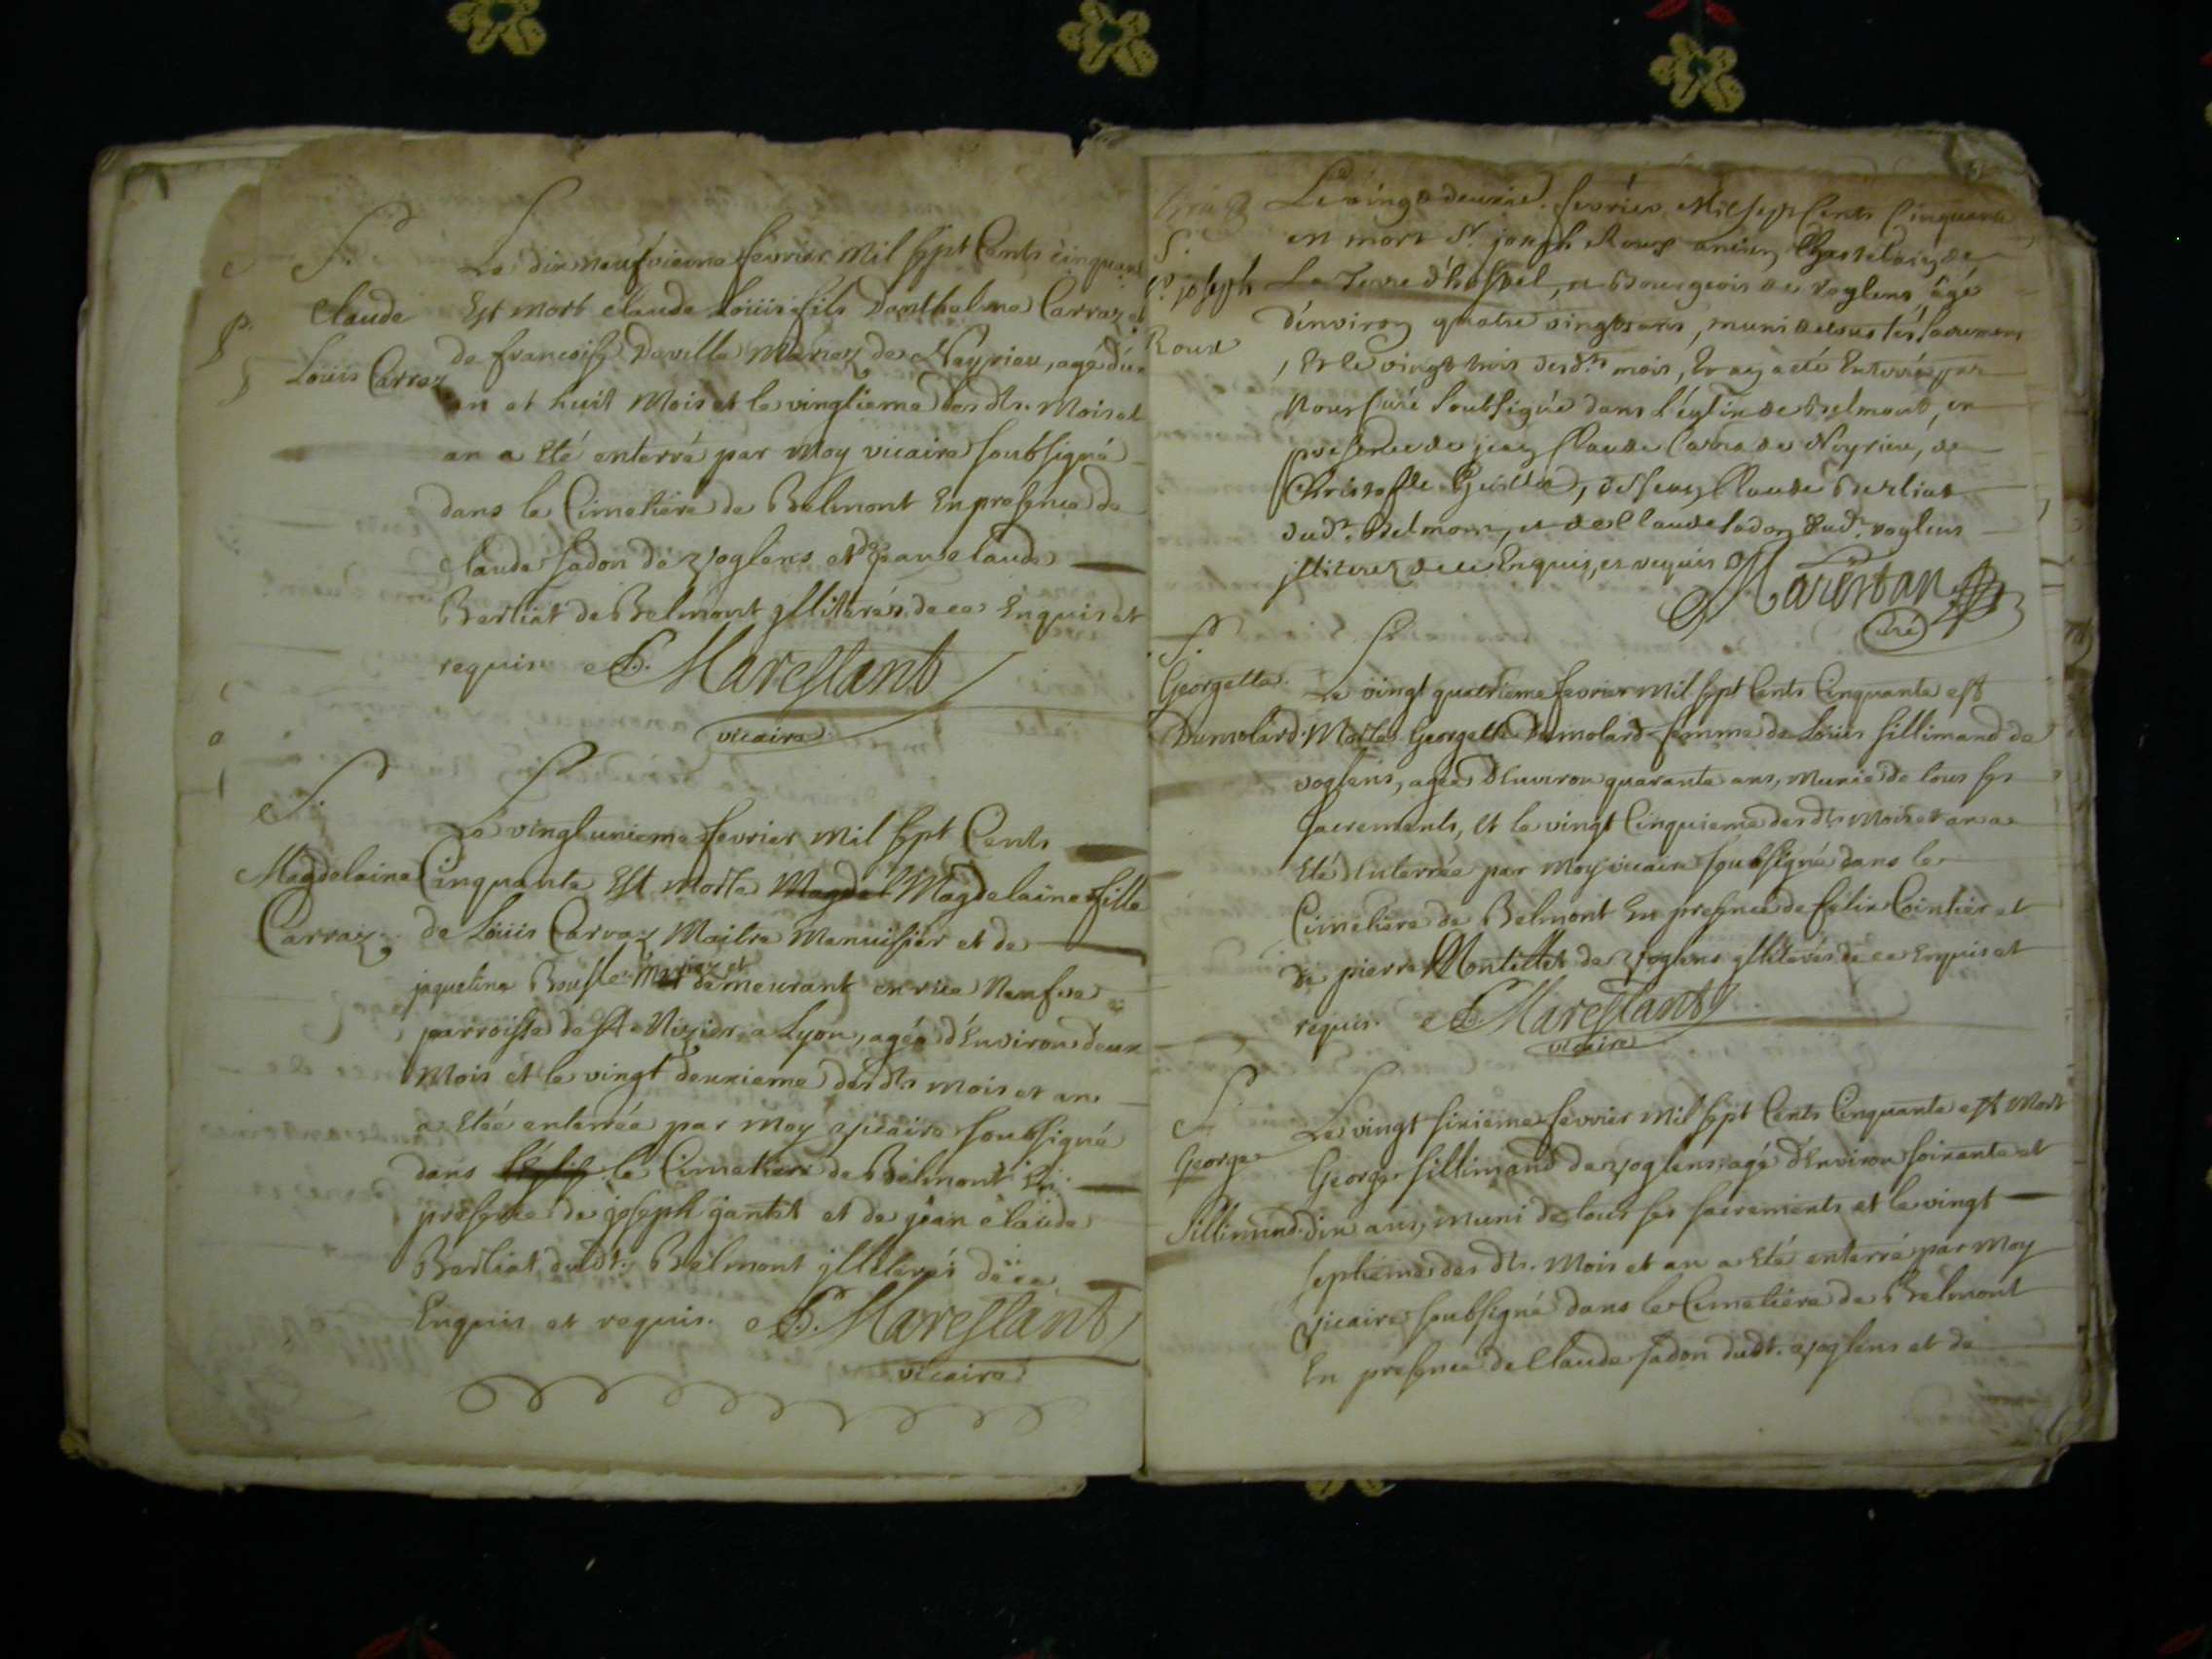 S.
Claude
Louis Carraz
Le dix neufvieme fevrier Mil sept Cents cinquante
Est mort Claude Loüis fils Danthelme Carraz et
de francoise Deville Mariez de Neyrieu, agé d'un
an et huit Mois et le vingtieme des dts. Mois et
an a Eté enterré par Moy vicaire soubsigné
dans le Cimetiere de Belmont En presence de
Claude sadon de voglens et de jean claude
Berliat de Belmont yllitérés de ce Enquis et
requis
Marestant
vicaire
S.
Magdelaine
Carraz
Le vingt unieme fevrier Mil sept Cents
Cinquante Est Morte Magdel Magdelaine fille
de Loüis Carraz Maitre Menuisier et de
jaqueline Mariez et demeurant en rue Neufve
parroisse de St Nizier a Lyon, agée d'Environ deux
Mois et le vingt deuxieme des dts Mois et an
a Etée enterrée par Moy vicaire soubsigné
dans l'Eglise le Cimetiere de Belmont En
presence de joseph gantet et de jean claude
Berliat dudt. Belmont yllitérés de ce
Enquis et requis.
Marestant
vicaire
S.
Sr. joseph
Roux
Le vingt deuxie. fevrier Mil sept Cents Cinquante
est mort Sr. joseph Roux ancien Chastelain de
La Terre d'hostel, et Bourgeois de voglens, âgé
d'environ quatre vingts ans, muni de tous ses sacremens
, Et le vingt trois desdts mois, Et an a été Enterré par
Nous Curé soubsigné dans l'églize de Belmont, en
presence de jean Claude Carra de Neyrieu, de
Christofle de jean Claude Berliat
dudt. Belmont, et de Claude sadon dudt. voglens
illiterez de ce Enquis, et requis
Marestan
curé
S.
Georgette
Dumolard
Le vingt quatrieme fevrier Mil sept Cents Cinquante est
Morte Georgette Dumolard femme de Loüis sillimand de
voglens, agée d'Environ quarante ans, Munie de tous ses
sacrements, et le vingt Cinquieme des dts Mois et an a
Eté Enterrée par Moy vicaire soubsigné dans le
Cimetiere de Belmont En presence de felix Cointier et
de pierre Montillet de voglens yllitérés de ce Enquis et
requis.
Marestant
vicaire
S.
George
Sillimand
Le vingt sixieme fevrier Mil sept Cents Cinquante est Mort
George sillimand de voglens, agé d'Environ soixante et
dix ans, Muni de tous ses sacrements et le vingt
septieme des dts. Mois et an a Eté enterré par Moy
vicaire soubsigné dans le Cimetiere de Belmont
En presence de Claude sadon dudt. voglens et de